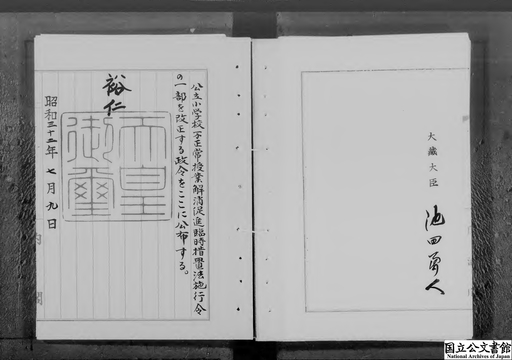 公立小学校不正常授業解消促進臨時措置法施行令
の一部を改正する政令をここに公布する。
裕仁
天皇
御璽
昭和三十二年七月九日
内閣
大藏大臣
池田勇人
国立公文書館
National Archives of Japan